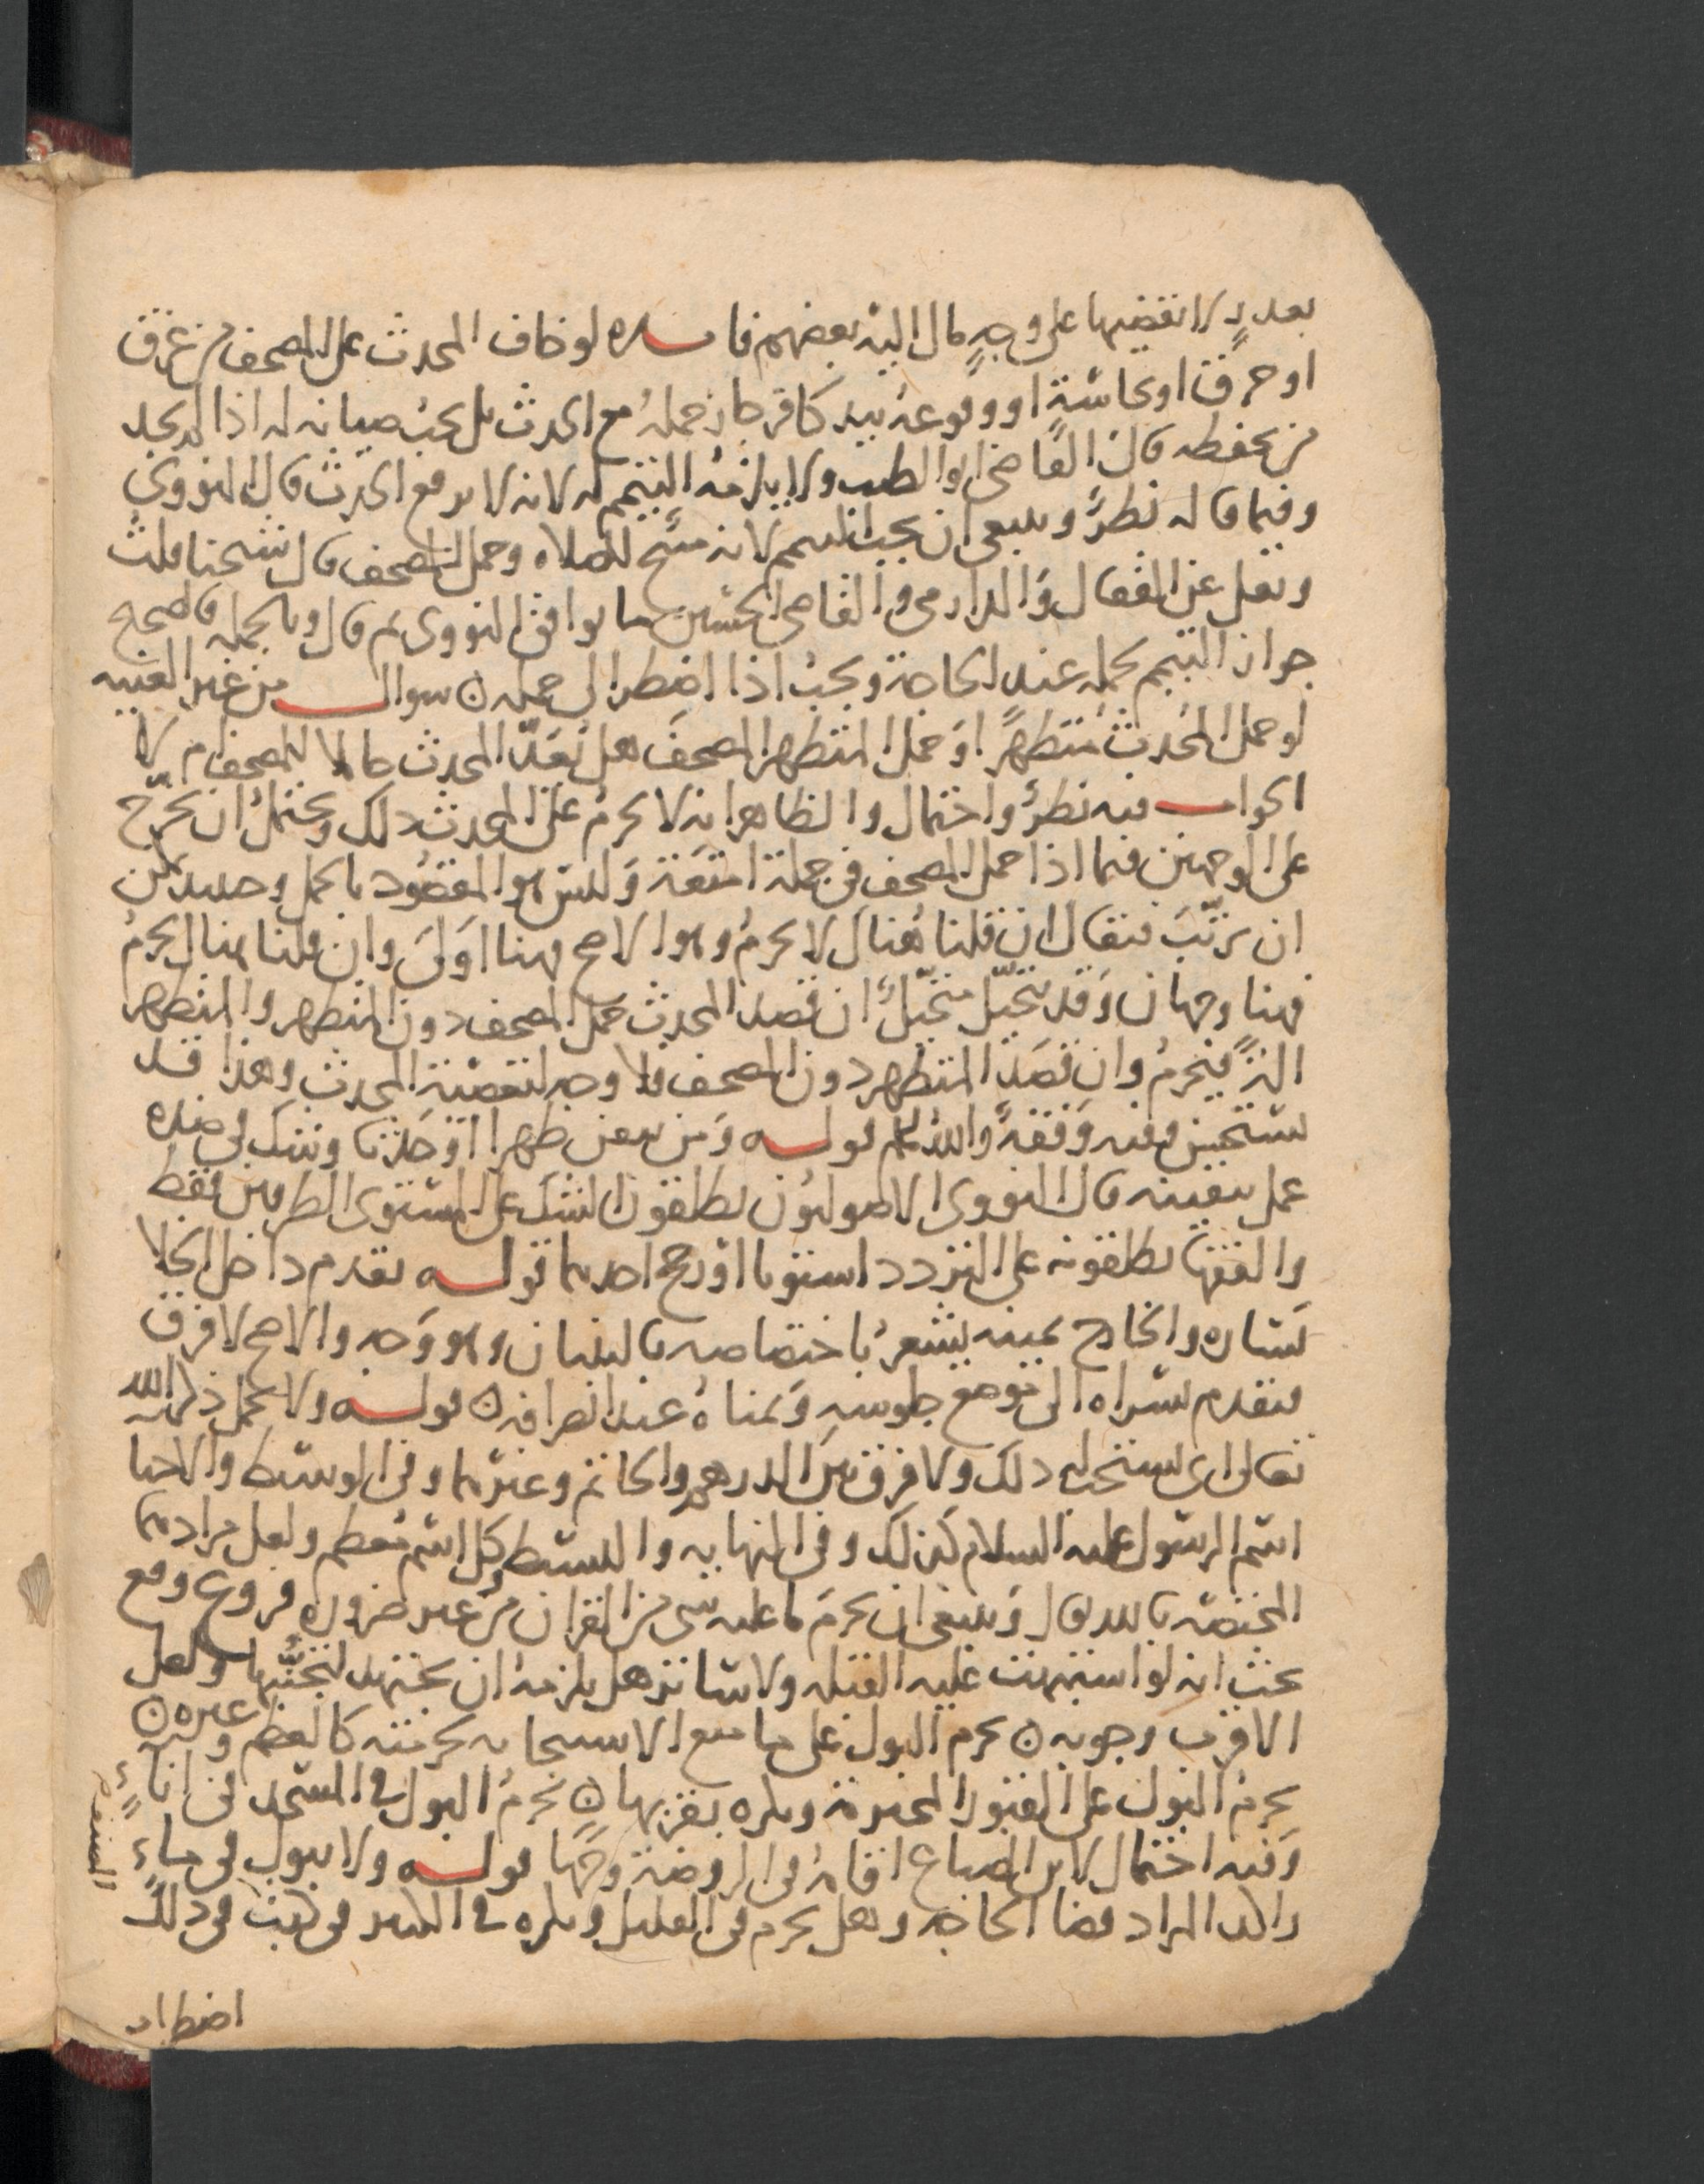 بعد يدٍ لا نقضيها على وجهٍ مال اليه بعضهم فايده لو خاف المحدث على المصحف من غرق
او حرق او نجاسةٍ او وقوعه بيد كافر جاز حمله مع الحدث بل يجب صيانه له اذا لم يجد
من يحفظه قال القاضي ابو الطيب ولا يلزمه التيمم له لانه لا يرفع الحدث قال النووي
وفيما قاله نظرٌ وينبغي ان يجب التيمم لانه مبيح للصلاه وحمل المصحف قال شيخنا قلت
ونقل عن القفال والدارمي والقاضي الحسين ما يوافق النووي ثم قال وبالجمله فالصحيح
جواز التيمم لحمله عند الحاجة ويجب اذا اضطر الى حمله ن سوال من غير الغنيه
لو حمل المحدث متطهرًا او حمل المتطهر المصحف هل يعدّ المحدث حاملا للمصحف ام لا
الجواب فيه نظرٌ واحتمال والظاهر انه لا يحرم على المحدث ذلك ويحتمل ان يخرّج
على الوجهين فيما اذا حمل المصحف في جملة امتعة وليس هو المقصود بالحمل وحينئذ يمكن
ان يرتّب فيقال ان قلنا هناك لا يحرم وهو الاصح فهنا اولى وان قلنا هناك يحرم
فهنا وجهان وقد يتخيّل متخيّل ان قصد المحدث حمل المصحف دون المتطهر والمتطهر
الة فيحرم وان قصد المتطهر دون المصحف فلا وجه لتعصية المحدث وهذا قد
يستحسن وفيه وقفةٌ والله اعلم قوله ومن تيقن طهرا او حدثا وشك في ضده
عمل بيقينه قال النووي الاصوليون يطلقون الشك على المستوى الطرفين فقط
والفقها يطلقونه على التردد استويا او رجح احدهما قوله يقدم داخل الخلا
يساره والخارج يمينه يشعر باختصاصه بالبنيان وهو وجه والاصح لا فرق
فيقدم يسراه الى موضع جلوسه ويمناه عند انصرافه ن قوله ولا يحمل ذكر الله
تعالى اي يستحب ذلك ولا فرق بين الدرهم والخاتم وغيرهما وفي الوسيط والاحيا
اسم الرسول عليه السلام كذلك وفي النهايه والبسيط وكل اسم معظم ولعل مرادهما
المختصه بالله قال وينبغي ان يحرم ما عليه شي من القران من غير ضروره فروع وقع
بحث انه لو اشتبهت عليه القبله ولا ساتر هل يلزمه ان يجتهد ليتجنّبها ولعل
الاقرب وجوبه ن يحرم البول على ما منع الاستنجا به لحرمته كالعظم وغيره ن
يحرم البول على القبور المحترمة ويكره بقربها ن يحرم البول في المسجد في اناءٍ
وفيه احتمال لابن الصباغ اقامه في الروضة وجها قوله ولا يبول في ماءٍ
راكد المراد قضا الحاجه وهل يحرم في القليل ويكره في الكثير في كتب في ذلك
اضطراب